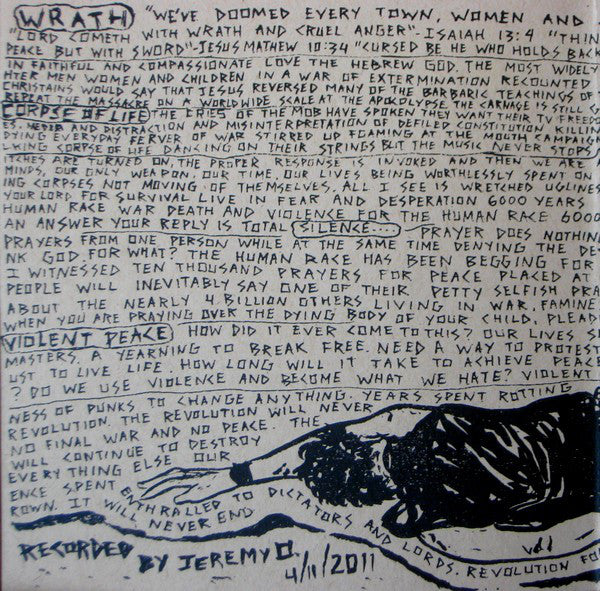 WRATH "WE'VE DOOMED EVERY TOWN, WOMEN AND
"LORD COMETH WITH WRATH AND CRUEL ANGER"-ISAIAH 13:4 "THIN
PEACE BUT WITH SWORD"-JESUS MATHEW 10:34 "CURSED BE HE WHO HOLDS BACK
IN FAITHFUL AND COMPASSIONATE LOVE THE HEBREW GOD. THE MOST WIDELY
HTER MEN WOMEN AND CHILDREN IN A WAR OF EXTERMINATION RECOUNTED
CHRISTAINS WOULD SAY THAT JESUS REVERSED MANY OF THE BARBARIC TEACHINGS OF
REPEAT THE MASSACRE ON A WORLDWIDE SCALE AT THE APOCALYPSE. THE CARNAGE IS STILL
CORPSE OF LIFE THE CRIES OF THE MOB HAVE SPOKEN THEY WANT THEIR TV FREEDO
ES. NEEDED AND DISTRACTION AND MISINTERPRETATION OF DEFILED CONSTITUTION KILLIN
DYING EVERYDAY FERVER OF WAR STIRRED UP FOAMING AT THE MOUTH CAMPAIG
LYING CORPSE OF LIFE DANCING ON THEIR STRINGS BUT THE MUSIC NEVER STOPS
ITCHES ARE TURNED ON, THE PROPER RESPONSE IS INVOKED AND THEN WE ARE
MINDS, OUR ONLY WEAPON. OUR TIME, OUR LIVES BEING WORTHLESSLY SPENT ON
ING CORPSES NOT MOVING OF THEMSELVES. ALL I SEE IS WRETCHED UGLINES
YOUR LORD FOR SURVIVAL LIVE IN FEAR AND DESPERATION 6000 YEARS
HUMAN RACE WAR DEATH AND VIOLENCE FOR THE HUMAN RACE 6000
AN ANSWER YOUR REPLY IS TOTAL SILENCE.... PRAYER DOES NOTHIN
PRAYERS FROM ONE PERSON WHILE AT THE SAME TIME DENYING THE DE
NK GOD. FOR WHAT? THE HUMAN RACE HAS BEEN BEGGING FOR
I WITNESSED TEN THOUSAND PRAYERS FOR PEACE PLACED AT
PEOPLE WILL INEVITABLY SAY ONE OF THEIR PETTY SELFISH PRA
ABOUT THE NEARLY 4 BILLION OTHERS LIVING IN WAR, FAMINE
WHEN YOU ARE PRAYING OVER THE DYING BODY OF YOUR CHILD, PLEAD
VIOLENT PEACE HOW DID IT EVER COME TO THIS? OUR LIVES S
MASTERS. A YEARNING TO BREAK FREE. NEED A WAY TO PROTEST
UST TO LIVE LIFE. HOW LONG WILL IT TAKE TO ACHIEVE PEACE
? DO WE USE VIOLENCE AND BECOME WHAT WE HATE? VIOLENT
NESS OF PUNKS TO CHANGE ANYTHING. YEARS SPENT ROTTING
REVOLUTION. THE REVOLUTION WILL NEVER
NO FINAL WAR AND NO PEACE. THE
WILL CONTINUE TO DESTROY
EVERYTHING ELSE OUR
ENCE SPENT ENTHRALLED TO DICTATORS AND LORDS. REVOLUTION FO
ROWN. IT WILL NEVER END
RECORDED BY JEREMY O. 4/11/2011